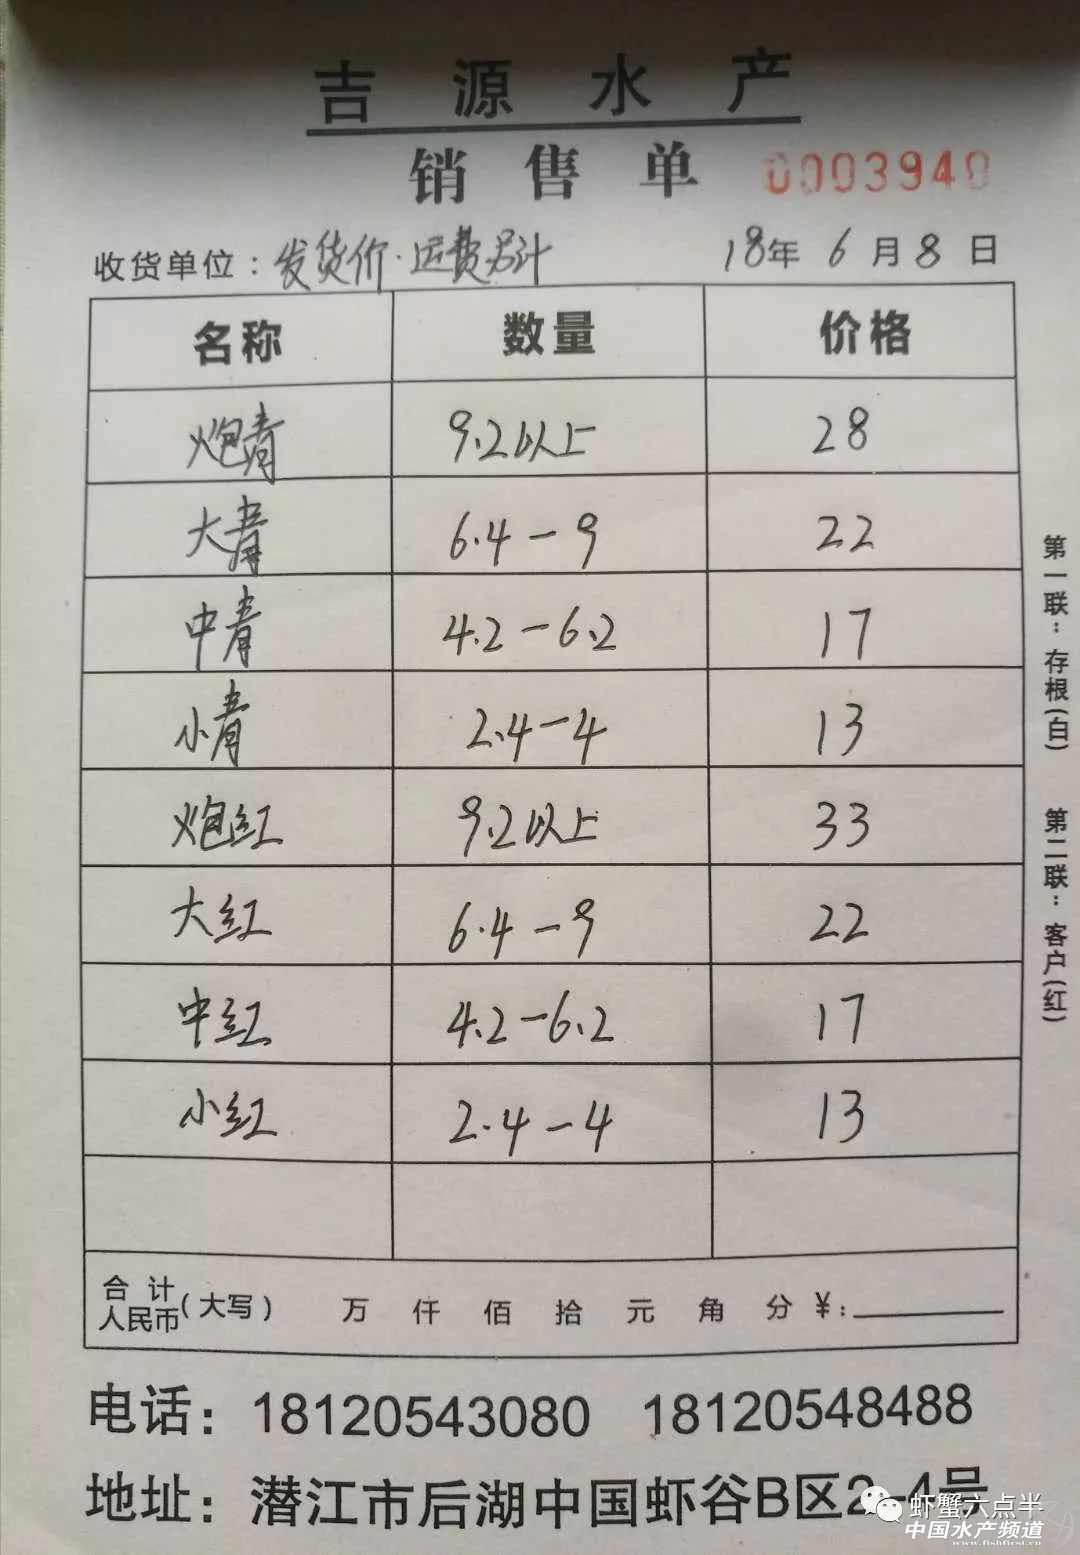 吉源水产
销售单 0003940
收货单位：发货价·运费另计 18年6月8日
名称 数量 价格
炮青 9.2以上 28
大青 6.4-9 22
中青 4.2-6.2 17
小青 2.4-4 13
炮红 9.2以上 33
大红 6.4-9 22
中红 4.2-6.2 17
小红 2.4-4 13
合计人民币(大写) 万仟佰拾元角分 ¥:
第一联：存根(白) 第二联：客户(红)
电话：18120543080 18120548488
地址：潜江市后湖中国虾谷B区2-4号
虾蟹六点半
中国水产频道
www.fishfirst.cn